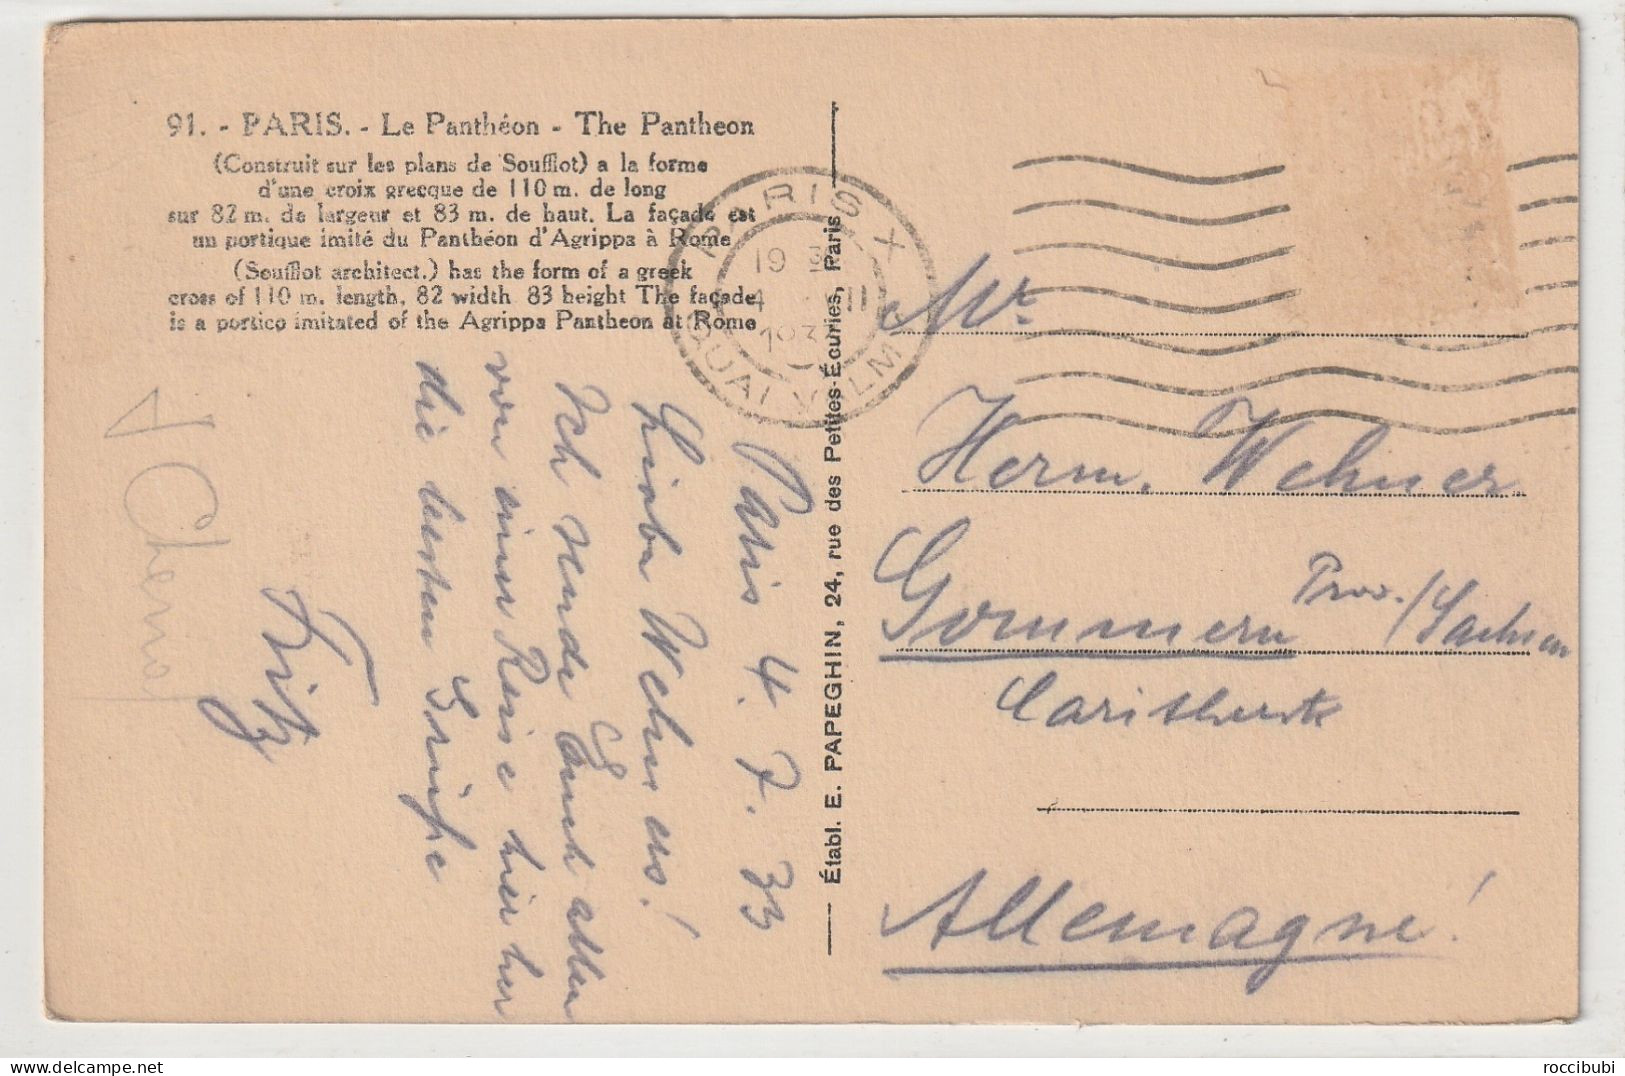 91. - PARIS. - Le Panthéon - The Pantheon
(Construit sur les plans de Soufflot) a la forme
d'une croix grecque de 110 m. de long
sur 82 m. de largeur et 83 m. de haut. La façade est
un portique imité du Panthéon d'Agrippa à Rome
(Soufflot architect.) has the form of a greek
cross of 110 m. length, 82 width 83 height The façade
is a portico imitated of the Agrippa Pantheon at Rome
PARIS X
19 3
4 VII
1933
QUAI VALMY
Établ. E. PAPEGHIN, 24, rue des Petites-Écuries, Paris
Paris 4. 7. 33
Liebe Wehners!
Ich sende Euch allen
von einer Reise hierher
die besten Grüße
Fritz
Mr
Herm. Wehner
Gommern Prov./Sachsen
Allemagne!
roccibubi